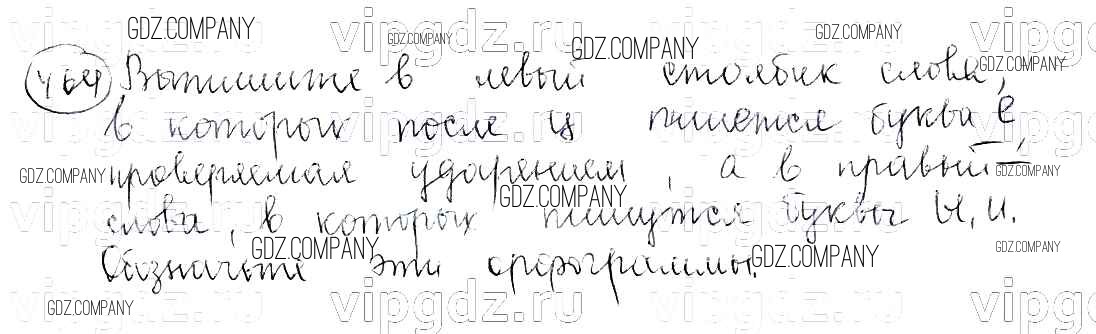 GDZ.COMPANY vipgdz.ru GDZ.COMPANY GDZ.COMPANY GDZ.COMPANY
464 Выпишите в левый столбик слова,
GDZ.COMPANY
в которых после ц пишется буква е,
проверяемая ударением, а в правый
GDZ.COMPANY GDZ.COMPANY GDZ.COMPANY
слова, в которых пишутся буквы ы, и.
GDZ.COMPANY GDZ.COMPANY GDZ.COMPANY
Обозначьте эти орфограммы.
GDZ.COMPANY vipgdz.ru vipgdz.ru